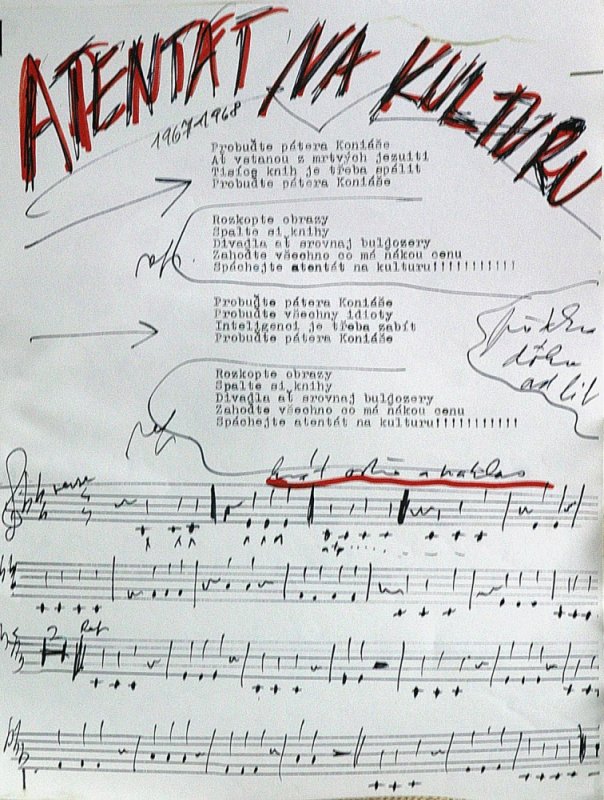 ATENTÁT NA KULTURU
1967-1968
Probuďte pátera Koniáše
Ať vstanou z mrtvých jezuiti
Tisíce knih je třeba spálit
Probuďte pátera Koniáše
Rozkopte obrazy
Spalte si knihy
Divadla ať srovnaj buldozery
Zahoďte všechno co má nákou cenu
ref.
Spáchejte atentát na kulturu!!!!!!!!!!!
Probuďte pátera Koniáše
Probuďte všechny idioty
Inteligenci je třeba zabít
Probuďte pátera Koniáše
Rozkopte obrazy
Spalte si knihy
Divadla ať srovnaj buldozery
Zahoďte všechno co má nákou cenu
Spáchejte atentát na kulturu!!!!!!!!!!!
ref.
hrát ostře a nahlas
2 Ref